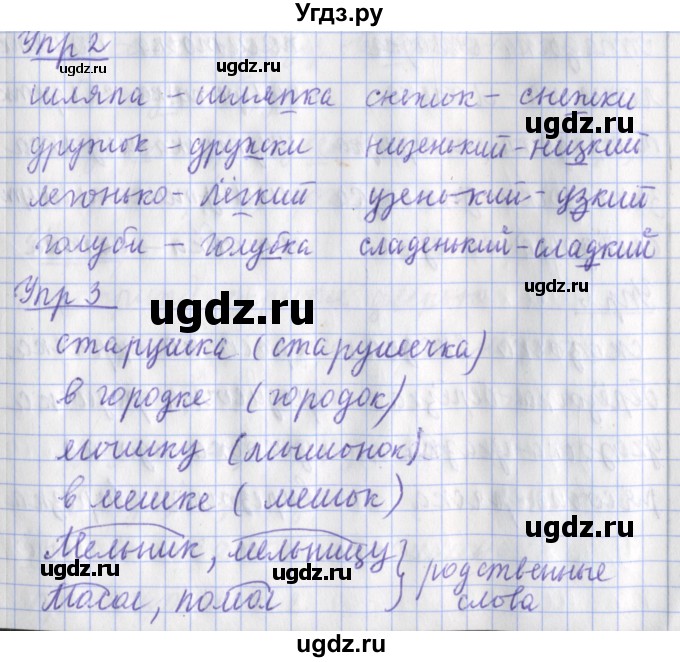 Угдз.ру
Упр 2
шляпа – шляпка снежок – снежки
дружок – дружки низенький – низкий
легонько – лёгкий узенький – узкий
голуби – голубка сладенький – сладкий
Упр 3
старушка (старушечка)
в городке (городок)
мышку (мышонок)
в мешке (мешок)
Мельник, мельницу
Молол, помол } родственные слова
ugdz.ru
ugdz.ru
ugdz.ru
ugdz.ru
ugdz.ru
ugdz.ru
ugdz.ru
ugdz.ru
ugdz.ru
ugdz.ru
ugdz.ru
ugdz.ru